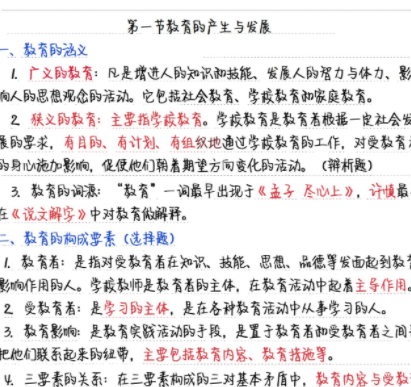 第一节教育的产生与发展
一、教育的涵义
1. 广义的教育：凡是增进人的知识和技能、发展人的智力与体力、影
响人的思想观念的活动。它包括社会教育、学校教育和家庭教育。
2. 狭义的教育：主要指学校教育。学校教育是教育者根据一定社会发
展的要求，有目的、有计划、有组织地通过学校教育的工作，对受教育
的身心施加影响，促使他们朝着期望方向变化的活动。（辨析题）
3. 教育的词源：“教育”一词最早出现于《孟子 尽心上》，许慎最
在《说文解字》中对教育做解释。
二、教育的构成要素（选择题）
1. 教育者：是指对受教育者在知识、技能、思想、品德等发面起到教育
影响作用的人。学校教师是教育者的主体，在教育活动中起着主导作用。
2. 受教育者：是学习的主体，是在各种教育活动中从事学习的人。
3. 教育影响：是教育实践活动的手段，是置于教育者和受教育者之间
把他们联系起来的纽带，主要包括教育内容、教育措施等。
4. 三要素的关系：在三要素构成的三对基本矛盾中，教育内容与受教